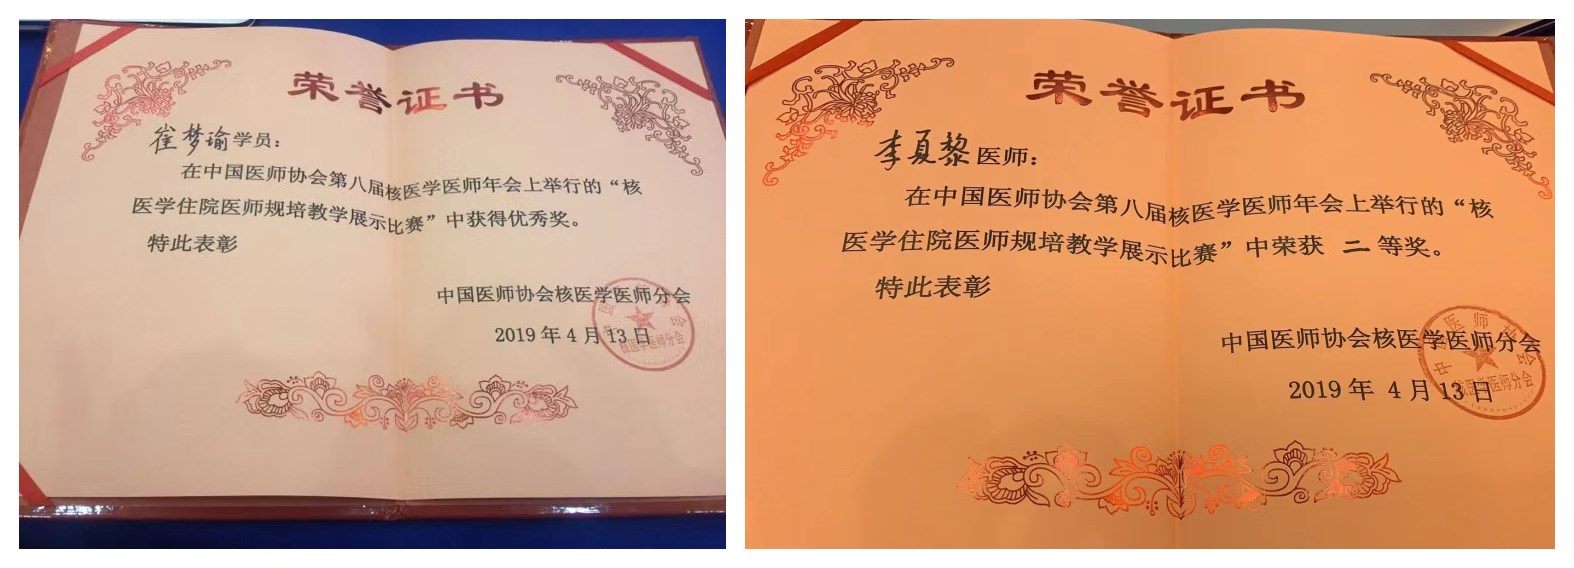 荣誉证书
崔梦瑜学员：
在中国医师协会第八届核医学医师年会上举行的“核
医学住院医师规培教学展示比赛”中获得优秀奖。
特此表彰
中国医师协会核医学医师分会
2019年4月13日
核医学医师分会
荣誉证书
李夏黎医师：
在中国医师协会第八届核医学医师年会上举行的“核
医学住院医师规培教学展示比赛”中荣获 二 等奖。
特此表彰
中国医师协会核医学医师分会
2019年 4月13日
中国医师协会
核医学医师分会